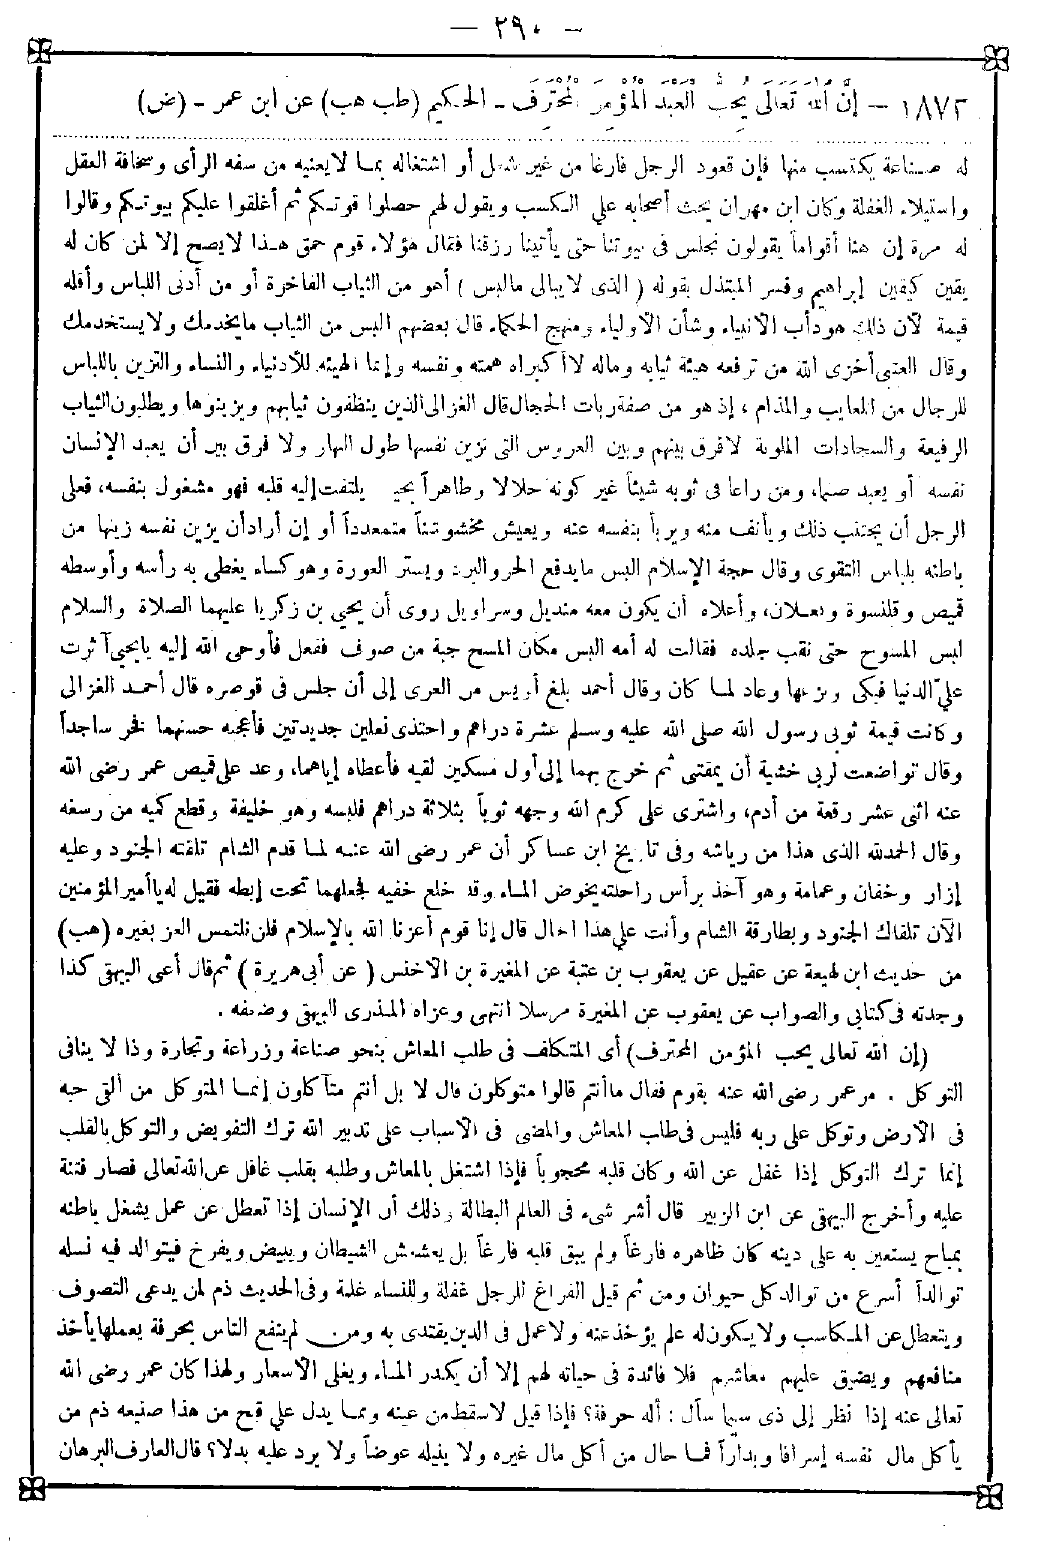 - ٢٩٠ -
١٨٧٢ - إِنَّ اللهَ تَعَالَى يُحِبُّ الْعَبْدَ الْمُؤْمِنَ الْمُحْتَرِفَ - الحكيم (طب هب) عن ابن عمر - (ض)
له صناعة يكتسب منها فإن قعود الرجل فارغا من غير شغل أو اشتغاله بما لا يعنيه من سفه الرأى وسخافة العقل
واستيلاء الغفلة وكان ابن مهران يحث أصحابه على الكسب ويقول لهم حصلوا قوتكم ثم أغلقوا عليكم بيوتكم وقالوا
له مرة إن هنا أقواماً يقولون نجلس فى بيوتنا حتى يأتينا رزقنا فقال هؤلاء قوم حمق هذا لا يصح إلا لمن كان له
يقين كيقين إبراهيم وفسر المبتذل بقوله (الذى لا يبالى مالبس) أهو من الثياب الفاخرة أو من أدنى اللباس وأقله
قيمة لأن ذلك هو دأب الأنبياء وشأن الأولياء ومنهج الحكماء قال بعضهم البس من الثياب مايخدمك ولا يستخدمك
وقال العتبى أخزى الله من ترفعه هيئة ثيابه وماله لا أكبراه همته ونفسه وإنما الهيئة للأدنياء والنساء والتزين باللباس
للرجال من المعايب والمذام، إذ هو من صفة ربات الحجال قال الغزالى الذين ينظفون ثيابهم ويزينوها ويطلبون الثياب
الرفيعة والسجادات الملونة لافرق بينهم وبين العروس التى تزين نفسها طول النهار ولا فرق بين أن يعبد الإنسان
نفسه أو يعبد صنما، ومن راعا فى ثوبه شيئاً غير كونه حلالا وطاهراً بحيث يلتفت إليه قلبه فهو مشغول بنفسه، فعلى
الرجل أن يجتنب ذلك ويأنف منه ويربأ بنفسه عنه ويعيش مخشوشناً متمعدداً أو إن أراد أن يزين نفسه زينها من
باطنه بلباس التقوى وقال حجة الإسلام البس مايدفع الحر والبرد ويستر العورة وهو كساء يغطى به رأسه وأوسطه
قميص وقلنسوة ونعلان، وأعلاه أن يكون معه منديل وسراويل روى أن يحيى بن زكريا عليهما الصلاة والسلام
لبس المسوح حتى نقب جلده فقالت له أمه البس مكان المسح جبة من صوف ففعل فأوحى الله إليه يايحيى آثرت
علىّ الدنيا فبكى ونزعها وعاد لما كان وقال أحمد بلغ أويس من العرى إلى أن جلس فى قوصره قال أحمد الغزالى
وكانت قيمة ثوبى رسول الله صلى الله عليه وسلم عشرة دراهم واحتذى نعلين جديدتين فأعجبه حسنهما فخر ساجداً
وقال تواضعت لربى خشية أن يمقتنى ثم خرج بهما إلى أول مسكين لقيه فأعطاه إياهما، وعد على قميص عمر رضى الله
عنه اثنى عشر رقعة من أدم، واشترى على كرم الله وجهه ثوباً بثلاثة دراهم فلبسه وهو خليفة وقطع كميه من رسغه
وقال الحمدلله الذى هذا من رياشه وفى تاريخ ابن عساكر أن عمر رضى الله عنه لما قدم الشام تلقته الجنود وعليه
إزار وخفان وعمامة وهو آخذ برأس راحلته يخوض الماء وقد خلع خفيه فجعلهما تحت إبطه فقيل له يا أمير المؤمنين
الآن تلقاك الجنود وبطارقة الشام وأنت على هذا الحال قال إنا قوم أعزنا الله بالإسلام فلن نلتمس العز بغيره (هب)
من حديث ابن لهيعة عن عقيل عن يعقوب بن عتبة عن المغيرة بن الأخنس (عن أبى هريرة) ثم قال أعى البيهقى كذا
وجدته فى كتابى والصواب عن يعقوب عن المغيرة مرسلا انتهى وعزاه المنذرى البيهقى وضعفه .
(إن الله تعالى يحب المؤمن المحترف) أى المتكلف فى طلب المعاش بنحو صناعة وزراعة وتجارة وذا لا ينافى
التوكل . مر عمر رضى الله عنه بقوم فقال ماأنتم قالوا متوكلون قال لا بل أنتم متآكلون إنما المتوكل من ألقى حبه
فى الأرض وتوكل على ربه فليس فى طلب المعاش والمضى فى الأسباب على تدبير الله ترك التفويض والتوكل بالقلب
إنما ترك التوكل إذا غفل عن الله وكان قلبه محجوباً فإذا اشتغل بالمعاش وطلبه بقلب غافل عن الله تعالى فصار فتنة
عليه وأخرج البيهقى عن ابن الزبير قال أشر شىء فى العالم البطالة وذلك أن الإنسان إذا تعطل عن عمل يشغل باطنه
بمباح يستعين به على دينه كان ظاهره فارغاً ولم يبق قلبه فارغاً بل يعشش الشيطان ويبيض ويفرخ فيتوالد فيه نسله
توالداً أسرع من توالد كل حيوان ومن ثم قيل الفراغ للرجل غفلة وللنساء غلمة وفى الحديث ذم لمن يدعى التصوف
ويتعطل عن المكاسب ولا يكون له علم يؤخذ عنه ولا عمل فى الدين يقتدى به ومن لم ينتفع الناس بحرفة يعملها يأخذ
منافعهم ويضيق عليهم معاشهم فلا فائدة فى حياته لهم إلا أن يكدر الماء ويغلى الأسعار ولهذا كان عمر رضى الله
تعالى عنه إذا نظر إلى ذى سيما سأل : أله حرفة؟ فإذا قيل لا سقط من عينه ومما يدل على قبح من هذا صنيعه ذم من
يأكل مال نفسه إسرافا وبداراً فما حال من أكل مال غيره ولا ينيله عوضاً ولا يرد عليه بدلا؟ قال العارف البرهان